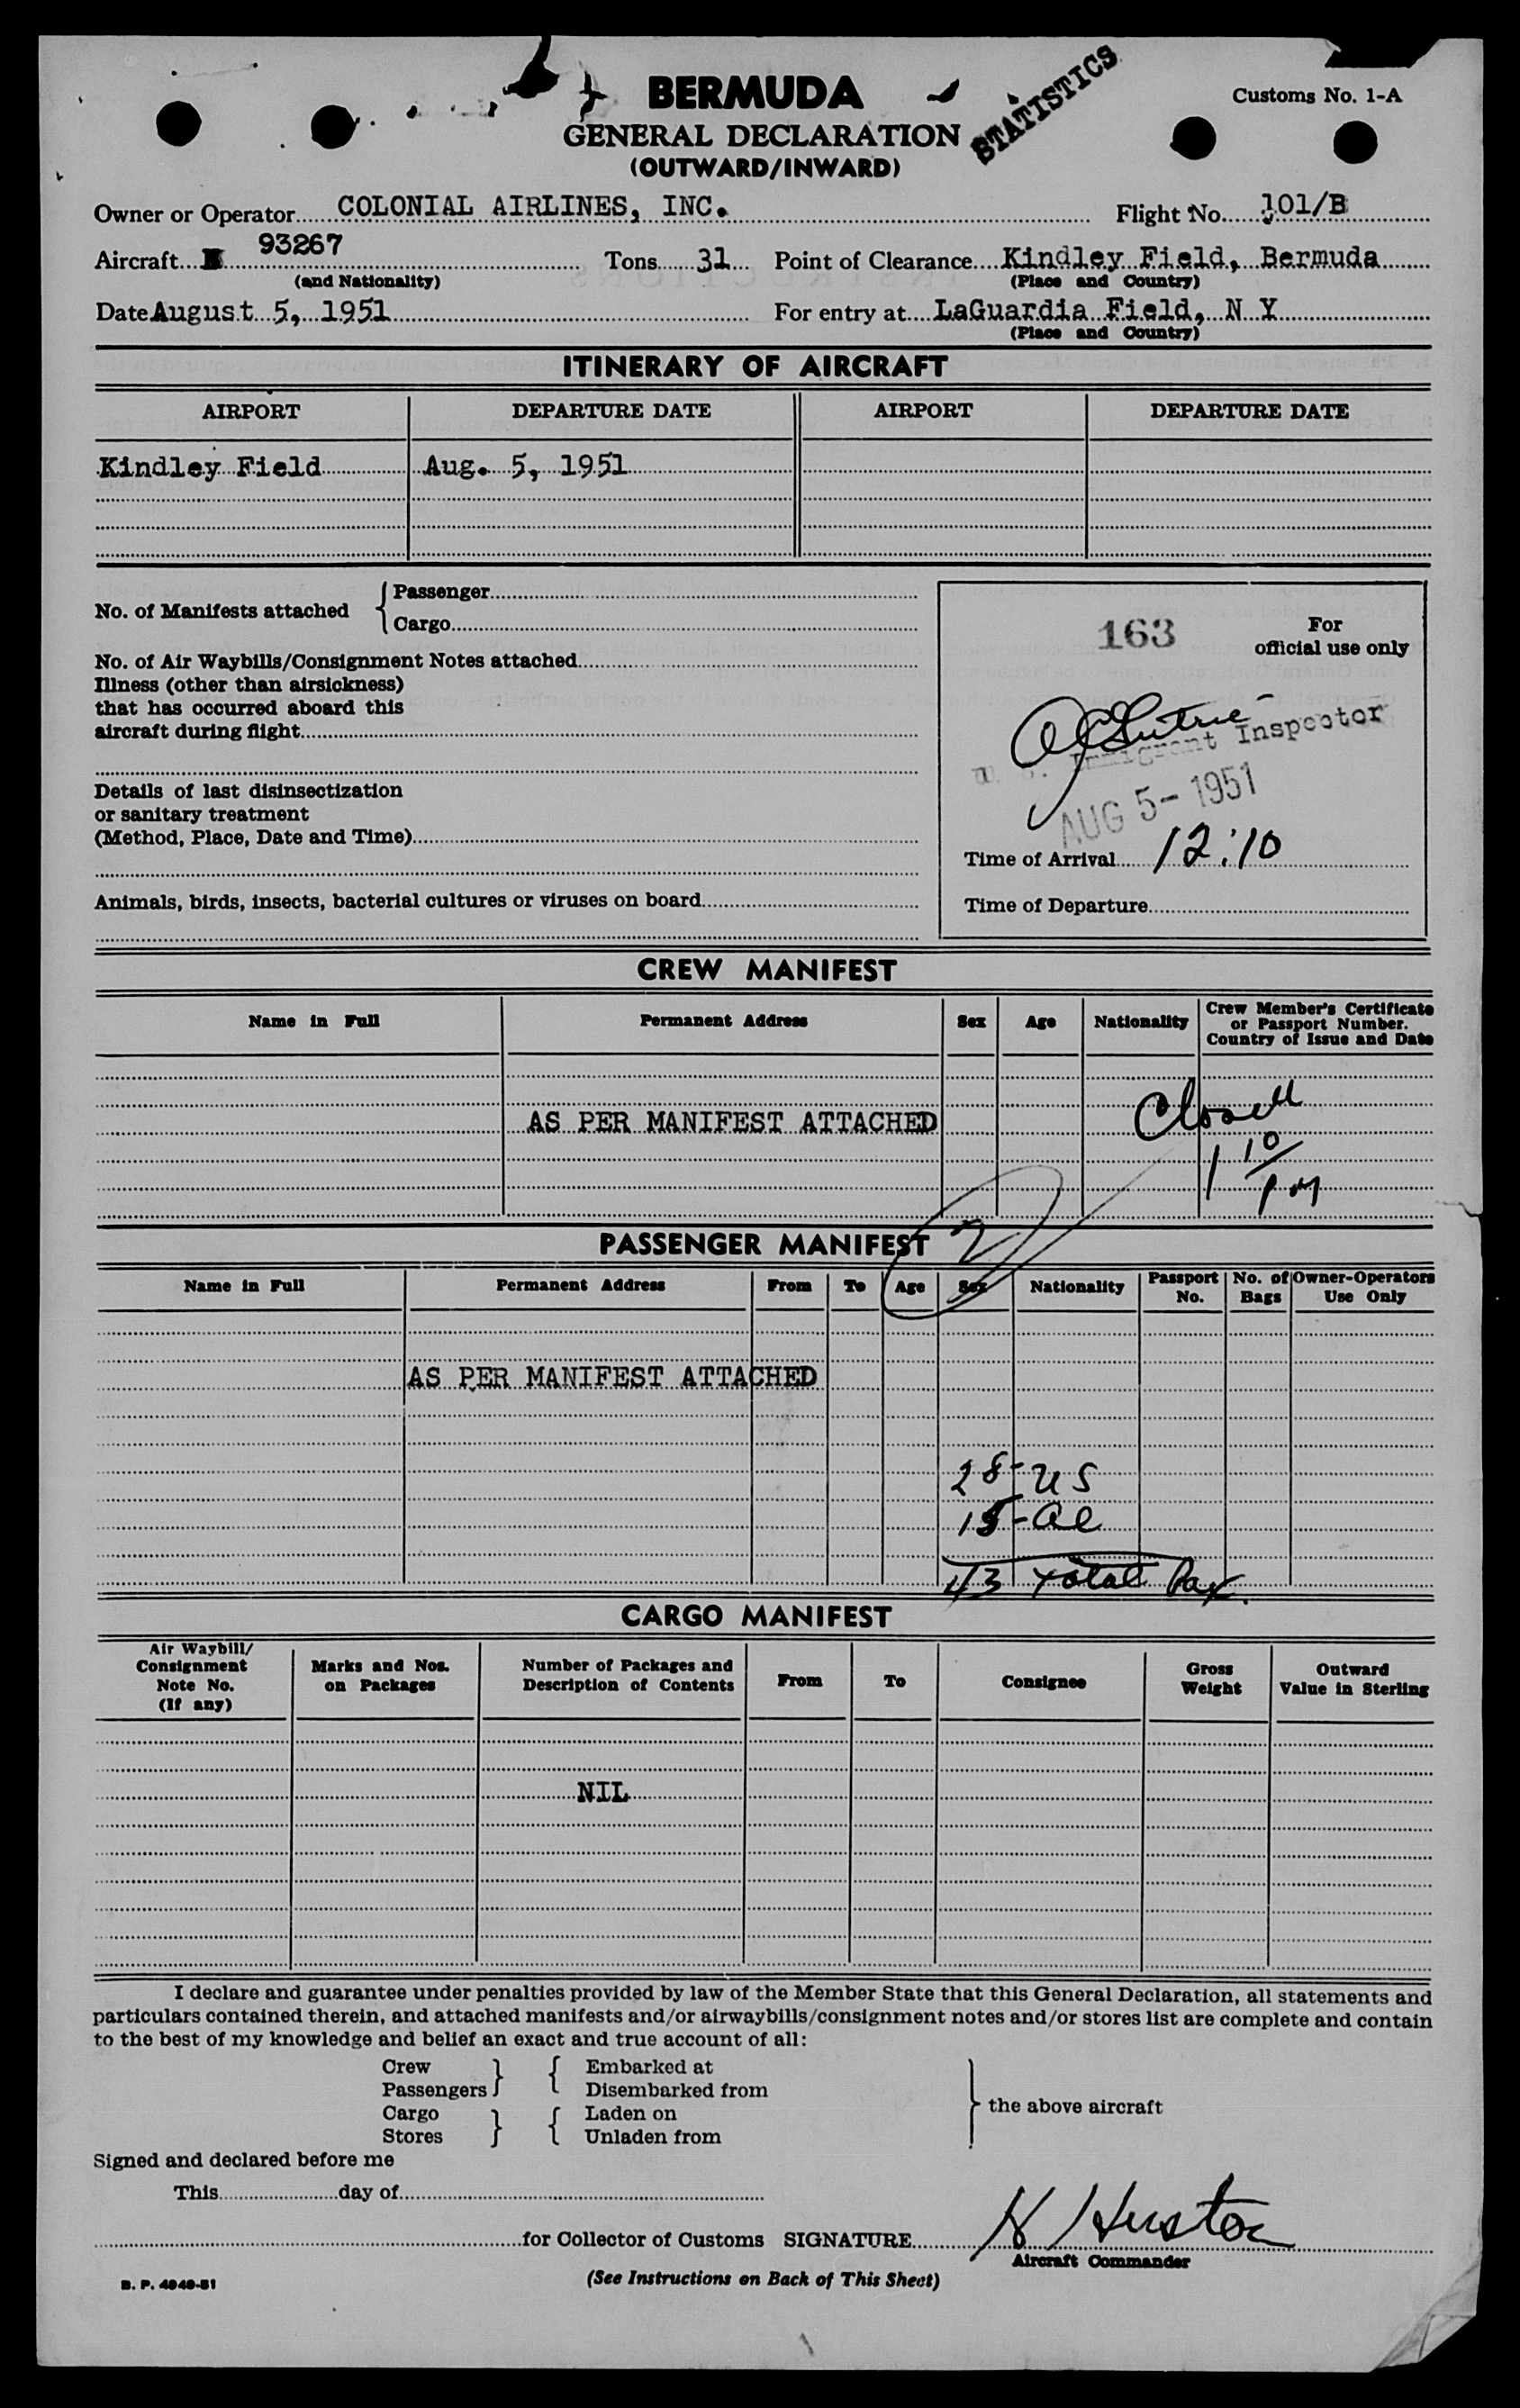 BERMUDA
STATISTICS
Customs No. 1-A
GENERAL DECLARATION
(OUTWARD/INWARD)
Owner or Operator COLONIAL AIRLINES, INC. Flight No. 101/B
Aircraft 93267 Tons 31 Point of Clearance Kindley Field, Bermuda
(and Nationality) (Place and Country)
Date August 5, 1951 For entry at LaGuardia Field, N Y
(Place and Country)
ITINERARY OF AIRCRAFT
AIRPORT DEPARTURE DATE AIRPORT DEPARTURE DATE
Kindley Field Aug. 5, 1951
No. of Manifests attached { Passenger
Cargo
No. of Air Waybills/Consignment Notes attached
Illness (other than airsickness)
that has occurred aboard this
aircraft during flight
Details of last disinsectization
or sanitary treatment
(Method, Place, Date and Time)
Animals, birds, insects, bacterial cultures or viruses on board
163 For
official use only
Immigrant Inspector
AUG 5 - 1951
Time of Arrival 12:10
Time of Departure
CREW MANIFEST
Name in Full Permanent Address Sex Age Nationality Crew Member's Certificate
or Passport Number.
Country of Issue and Date
AS PER MANIFEST ATTACHED
1 10
PM
PASSENGER MANIFEST 2
Name in Full Permanent Address From To Age Sex Nationality Passport No. No. of Bags Owner-Operators Use Only
AS PER MANIFEST ATTACHED
28 - US
15 - al
43 Total Pax.
CARGO MANIFEST
Air Waybill/ Consignment Note No. (If any) Marks and Nos. on Packages Number of Packages and Description of Contents From To Consignee Gross Weight Outward Value in Sterling
NIL
I declare and guarantee under penalties provided by law of the Member State that this General Declaration, all statements and
particulars contained therein, and attached manifests and/or airwaybills/consignment notes and/or stores list are complete and contain
to the best of my knowledge and belief an exact and true account of all:
Crew } { Embarked at
Passengers Disembarked from
Cargo } { Laden on } the above aircraft
Stores Unladen from
Signed and declared before me
This day of
for Collector of Customs SIGNATURE H Huston
Aircraft Commander
B. P. 4040-51 (See Instructions on Back of This Sheet)